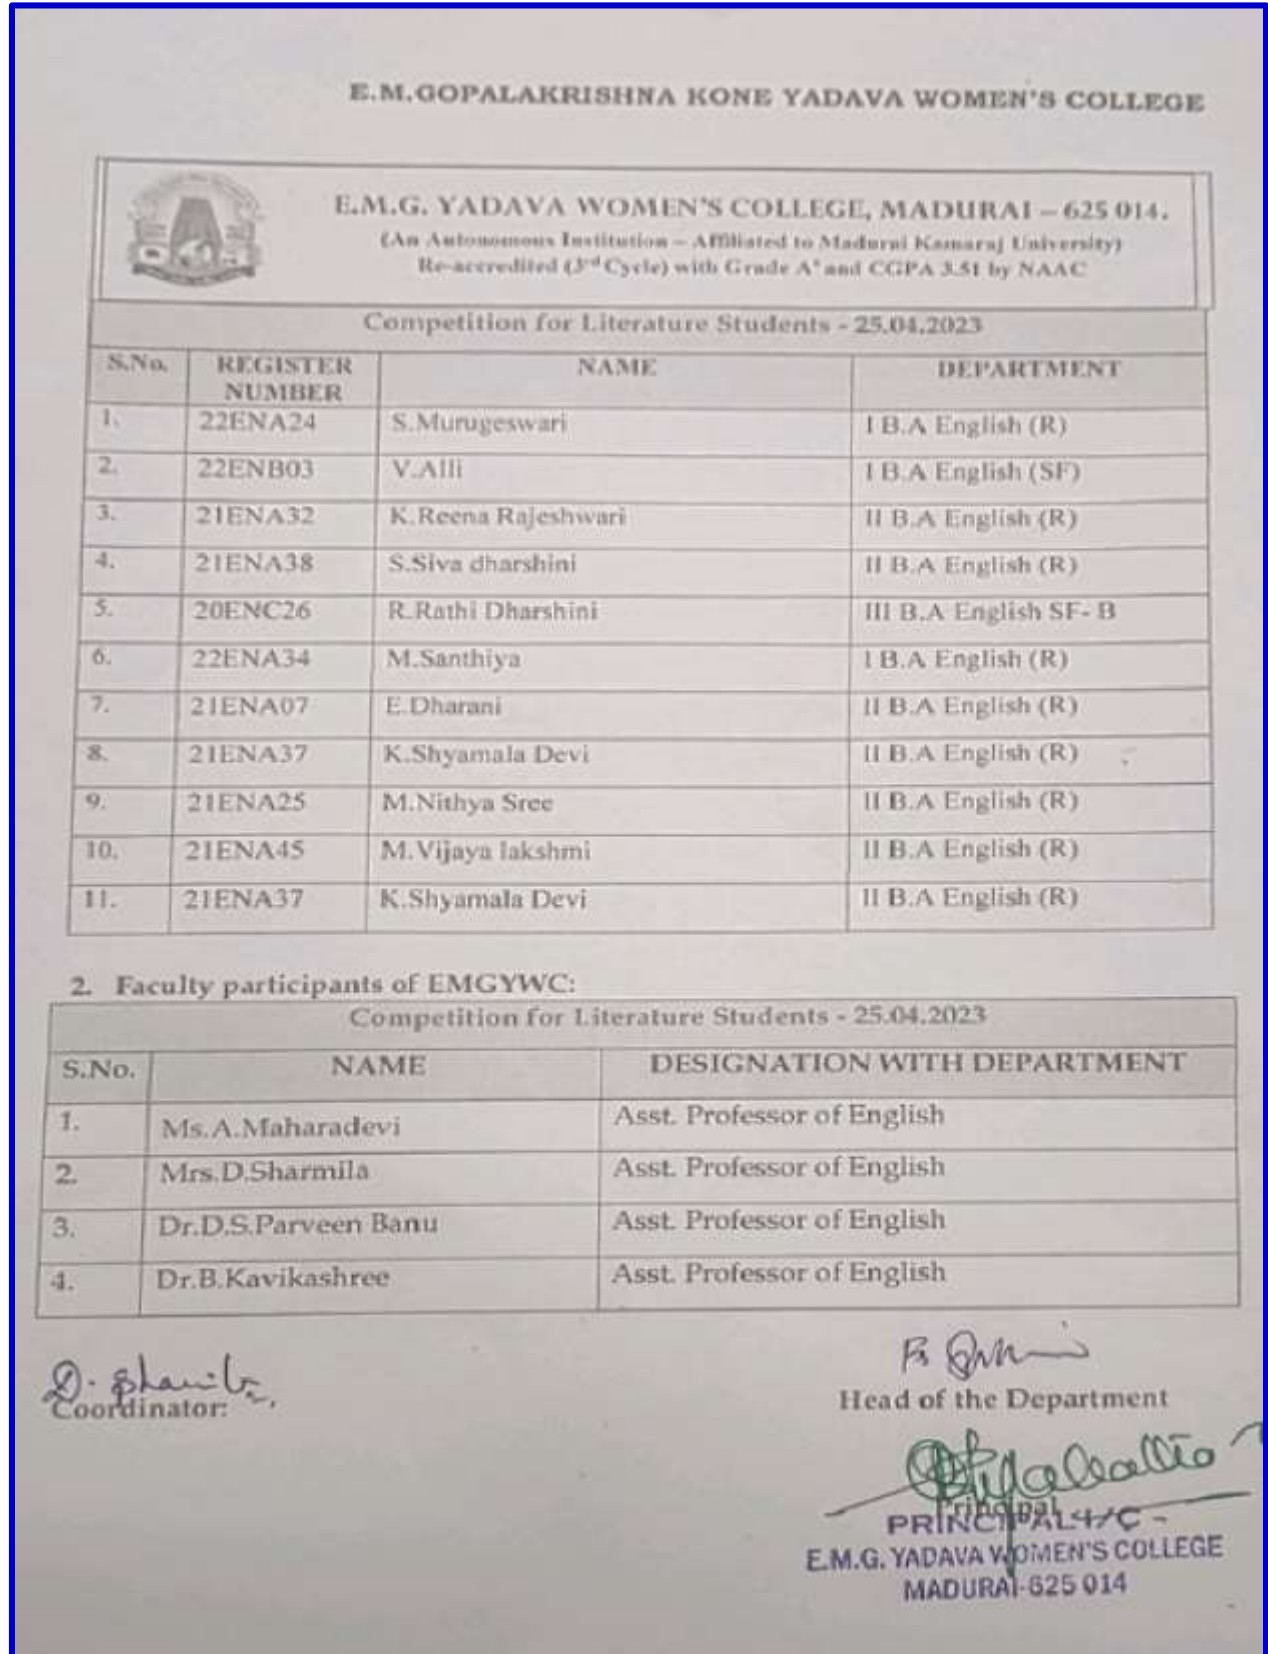 E.M.GOPALAKRISHNA KONE YADAVA WOMEN'S COLLEGE
E.M.G. YADAVA WOMEN'S COLLEGE, MADURAI – 625 014.
(An Autonomous Institution – Affiliated to Madurai Kamaraj University)
Re-accredited (3rd Cycle) with Grade A+ and CGPA 3.51 by NAAC
Competition for Literature Students - 25.04.2023
S.No. REGISTER NUMBER NAME DEPARTMENT
1. 22ENA24 S.Murugeswari I B.A English (R)
2. 22ENB03 V.Alli I B.A English (SF)
3. 21ENA32 K.Reena Rajeshwari II B.A English (R)
4. 21ENA38 S.Siva dharshini II B.A English (R)
5. 20ENC26 R.Rathi Dharshini III B.A English SF- B
6. 22ENA34 M.Santhiya I B.A English (R)
7. 21ENA07 E.Dharani II B.A English (R)
8. 21ENA37 K.Shyamala Devi II B.A English (R)
9. 21ENA25 M.Nithya Sree II B.A English (R)
10. 21ENA45 M.Vijaya lakshmi II B.A English (R)
11. 21ENA37 K.Shyamala Devi II B.A English (R)
2. Faculty participants of EMGYWC:
Competition for Literature Students - 25.04.2023
S.No. NAME DESIGNATION WITH DEPARTMENT
1. Ms.A.Maharadevi Asst. Professor of English
2. Mrs.D.Sharmila Asst. Professor of English
3. Dr.D.S.Parveen Banu Asst. Professor of English
4. Dr.B.Kavikashree Asst. Professor of English
Coordinator:
Head of the Department
Principal
PRINCIPAL I/C
E.M.G. YADAVA WOMEN'S COLLEGE
MADURAI-625 014